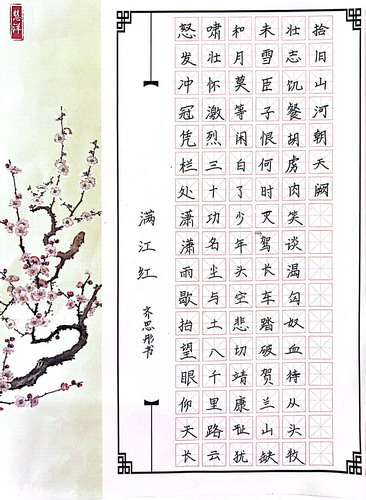 慧洋
满江红
齐思彤书
怒发冲冠凭栏处潇潇雨歇抬望眼仰天长
啸壮怀激烈三十功名尘与土八千里路云
和月莫等闲白了少年头空悲切靖康耻犹
未雪臣子恨何时灭驾长车踏破贺兰山缺
壮志饥餐胡虏肉笑谈渴匈奴血待从头收
拾旧山河朝天阙